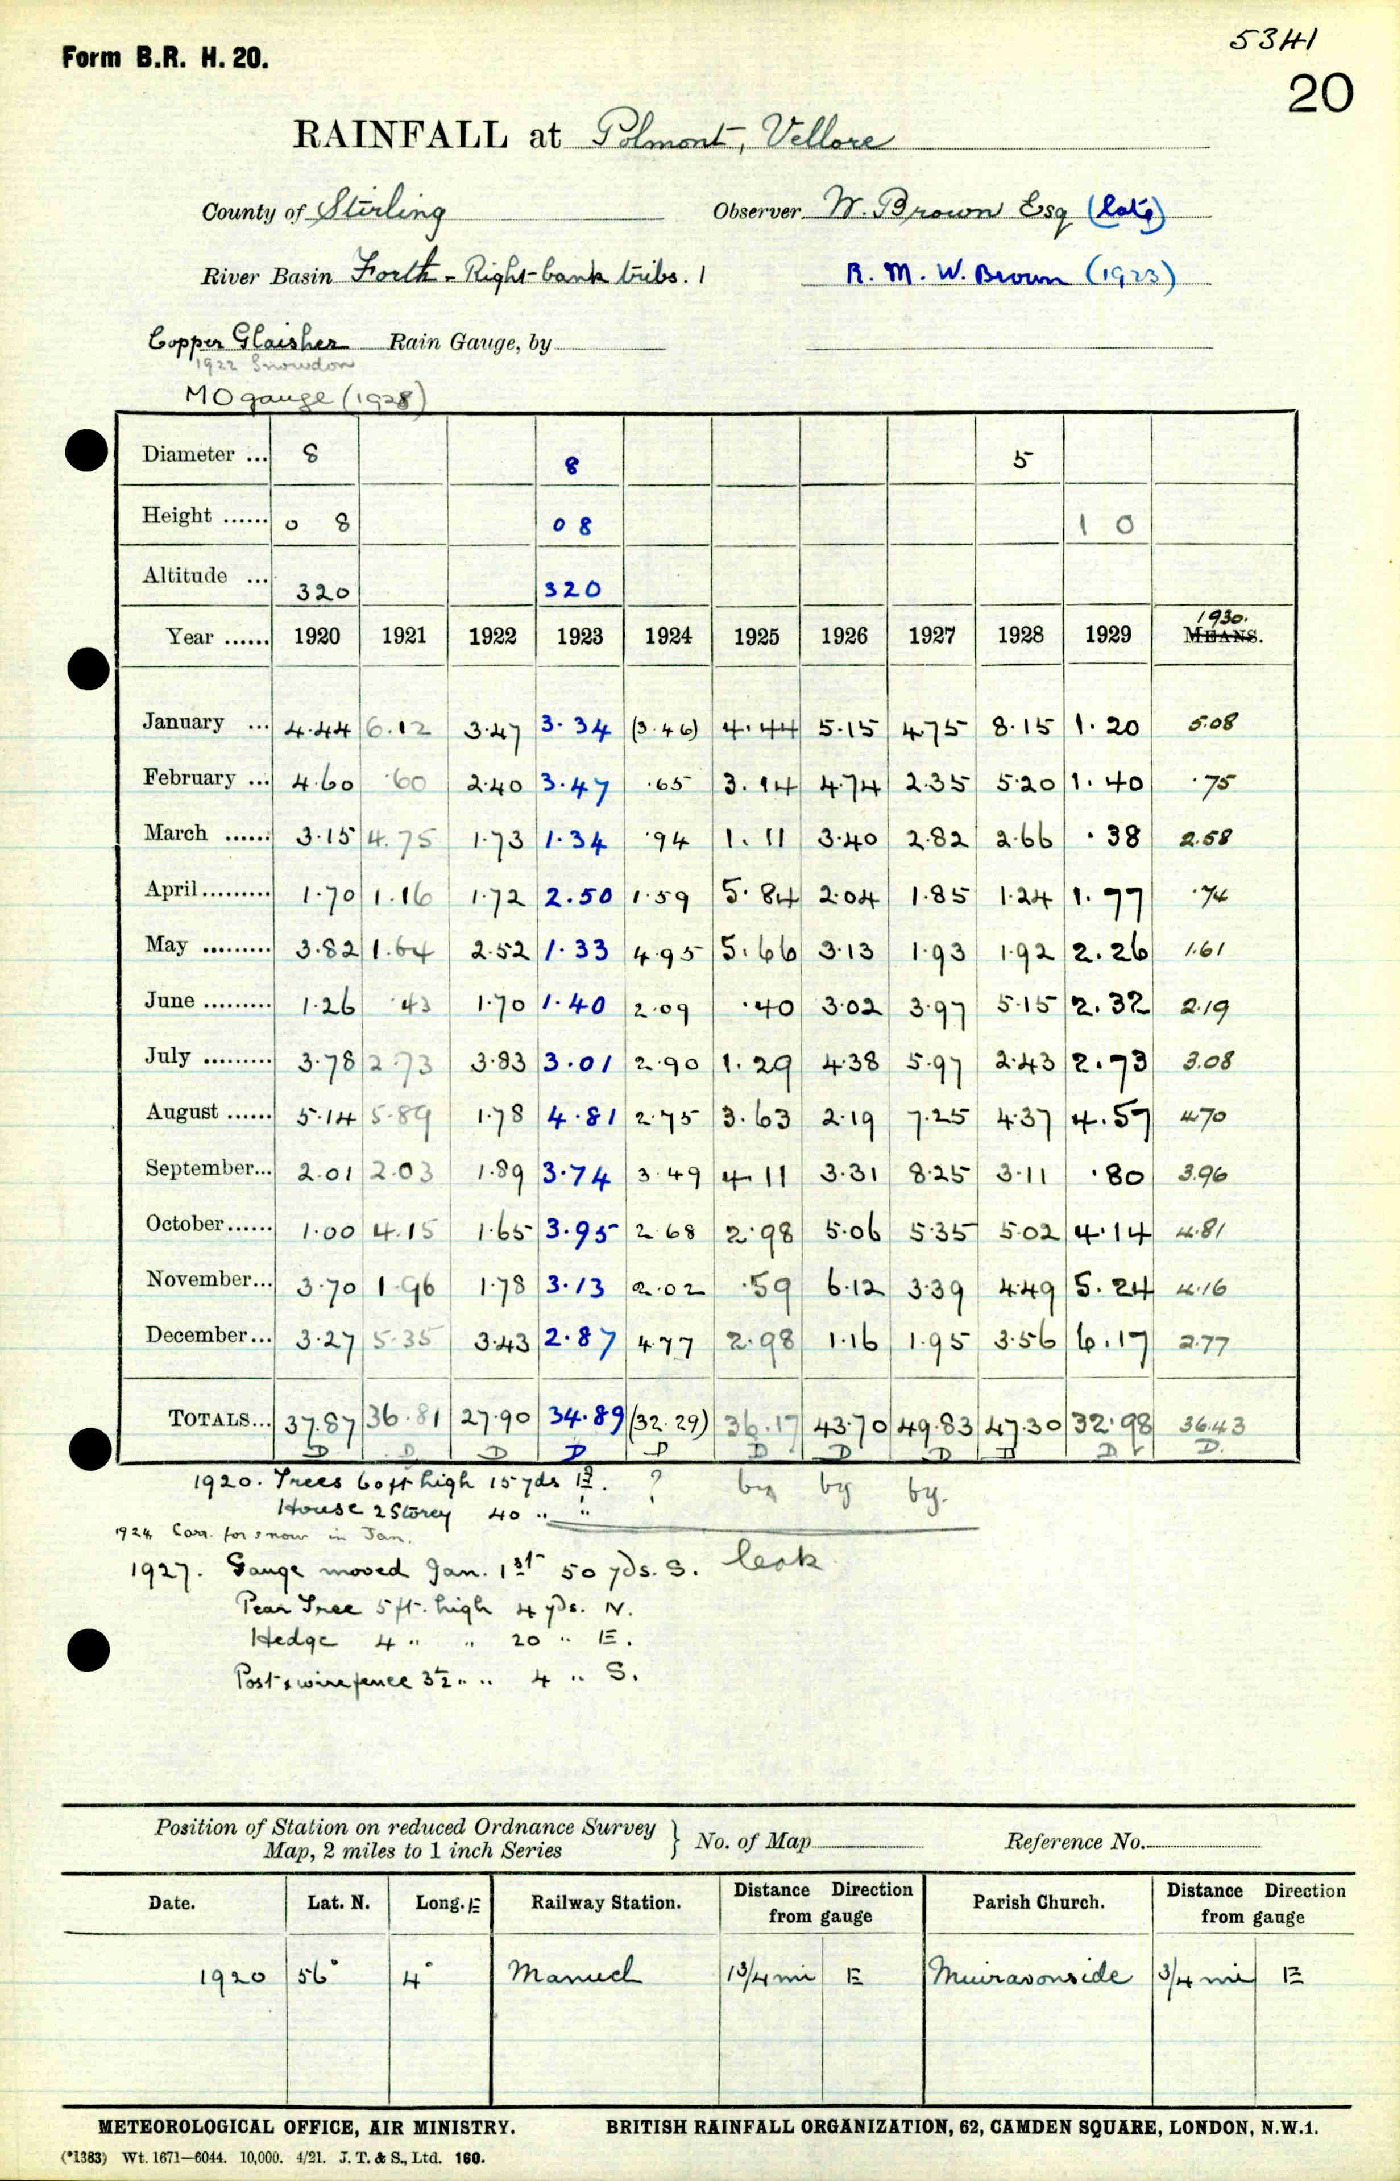 5341
Form B.R. H. 20.
20
RAINFALL at Polmont, Vellore
County of Stirling Observer W. Brown Esq (late)
River Basin Forth - Right-bank tribs. 1 R. M. W. Brown (1923)
Copper Glaisher Rain Gauge, by
1922 Snowdon
MO gauge (1928)
Diameter ... 8 8 5
Height ...... 0 8 0 8 1 0
Altitude ... 320 320
Year ...... 1920 1921 1922 1923 1924 1925 1926 1927 1928 1929 1930. MEANS.
January ... 4.44 6.12 3.47 3.34 (3.46) 4.44 5.15 4.75 8.15 1.20 5.08
February ... 4.60 .60 2.40 3.47 .65 3.14 4.74 2.35 5.20 1.40 .75
March ...... 3.15 4.75 1.73 1.34 .94 1.11 3.40 2.82 2.66 .38 2.58
April ......... 1.70 1.16 1.72 2.50 1.59 5.84 2.04 1.85 1.24 1.77 .74
May ......... 3.82 1.64 2.52 1.33 4.95 5.66 3.13 1.93 1.92 2.26 1.61
June ......... 1.26 .43 1.70 1.40 2.09 .40 3.02 3.97 5.15 2.32 2.19
July ......... 3.78 2.73 3.83 3.01 2.90 1.29 4.38 5.97 2.43 2.73 3.08
August ...... 5.14 5.89 1.78 4.81 2.75 3.63 2.19 7.25 4.37 4.57 4.70
September... 2.01 2.03 1.89 3.74 3.49 4.11 3.31 8.25 3.11 .80 3.96
October...... 1.00 4.15 1.65 3.95 2.68 2.98 5.06 5.35 5.02 4.14 4.81
November... 3.70 1.96 1.78 3.13 2.02 .59 6.12 3.39 4.49 5.24 4.16
December... 3.27 5.35 3.43 2.87 4.77 2.98 1.16 1.95 3.56 6.17 2.77
TOTALS... 37.87 36.81 27.90 34.89 (32.29) 36.17 43.70 49.83 47.30 32.98 36.43
D D D D D D D D D D D.
1920. Trees 60 ft high 15 yds E. ? by by by.
House 2 Storey 40 " "
1924 Corr. for snow in Jan.
1927. Gauge moved Jan. 1st 50 yds. S. leak
Pear Tree 5 ft. high 4 yds. N.
Hedge 4 " " 20 " E.
Post & wire fence 3½ " " 4 " S.
Position of Station on reduced Ordnance Survey Map, 2 miles to 1 inch Series } No. of Map Reference No.
Date. Lat. N. Long. E Railway Station. Distance Direction from gauge Parish Church. Distance Direction from gauge
1920 56° 4° Manuel 1¾ mi E Muiravonside ¾ mi E
METEOROLOGICAL OFFICE, AIR MINISTRY. BRITISH RAINFALL ORGANIZATION, 62, CAMDEN SQUARE, LONDON, N.W.1.
(*1383) Wt. 1671—6044. 10,000. 4/21. J. T. & S., Ltd. 160.